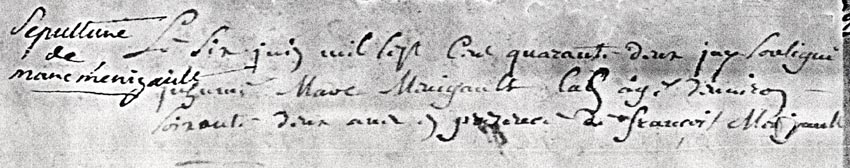 Sepulture
de
marc menigault
Le Six juin mil Sept Cent quarante deux jay Soubsigné
inhumé Marc Menigault agé denviron
Soixante deux ans en presence de françois Menigault